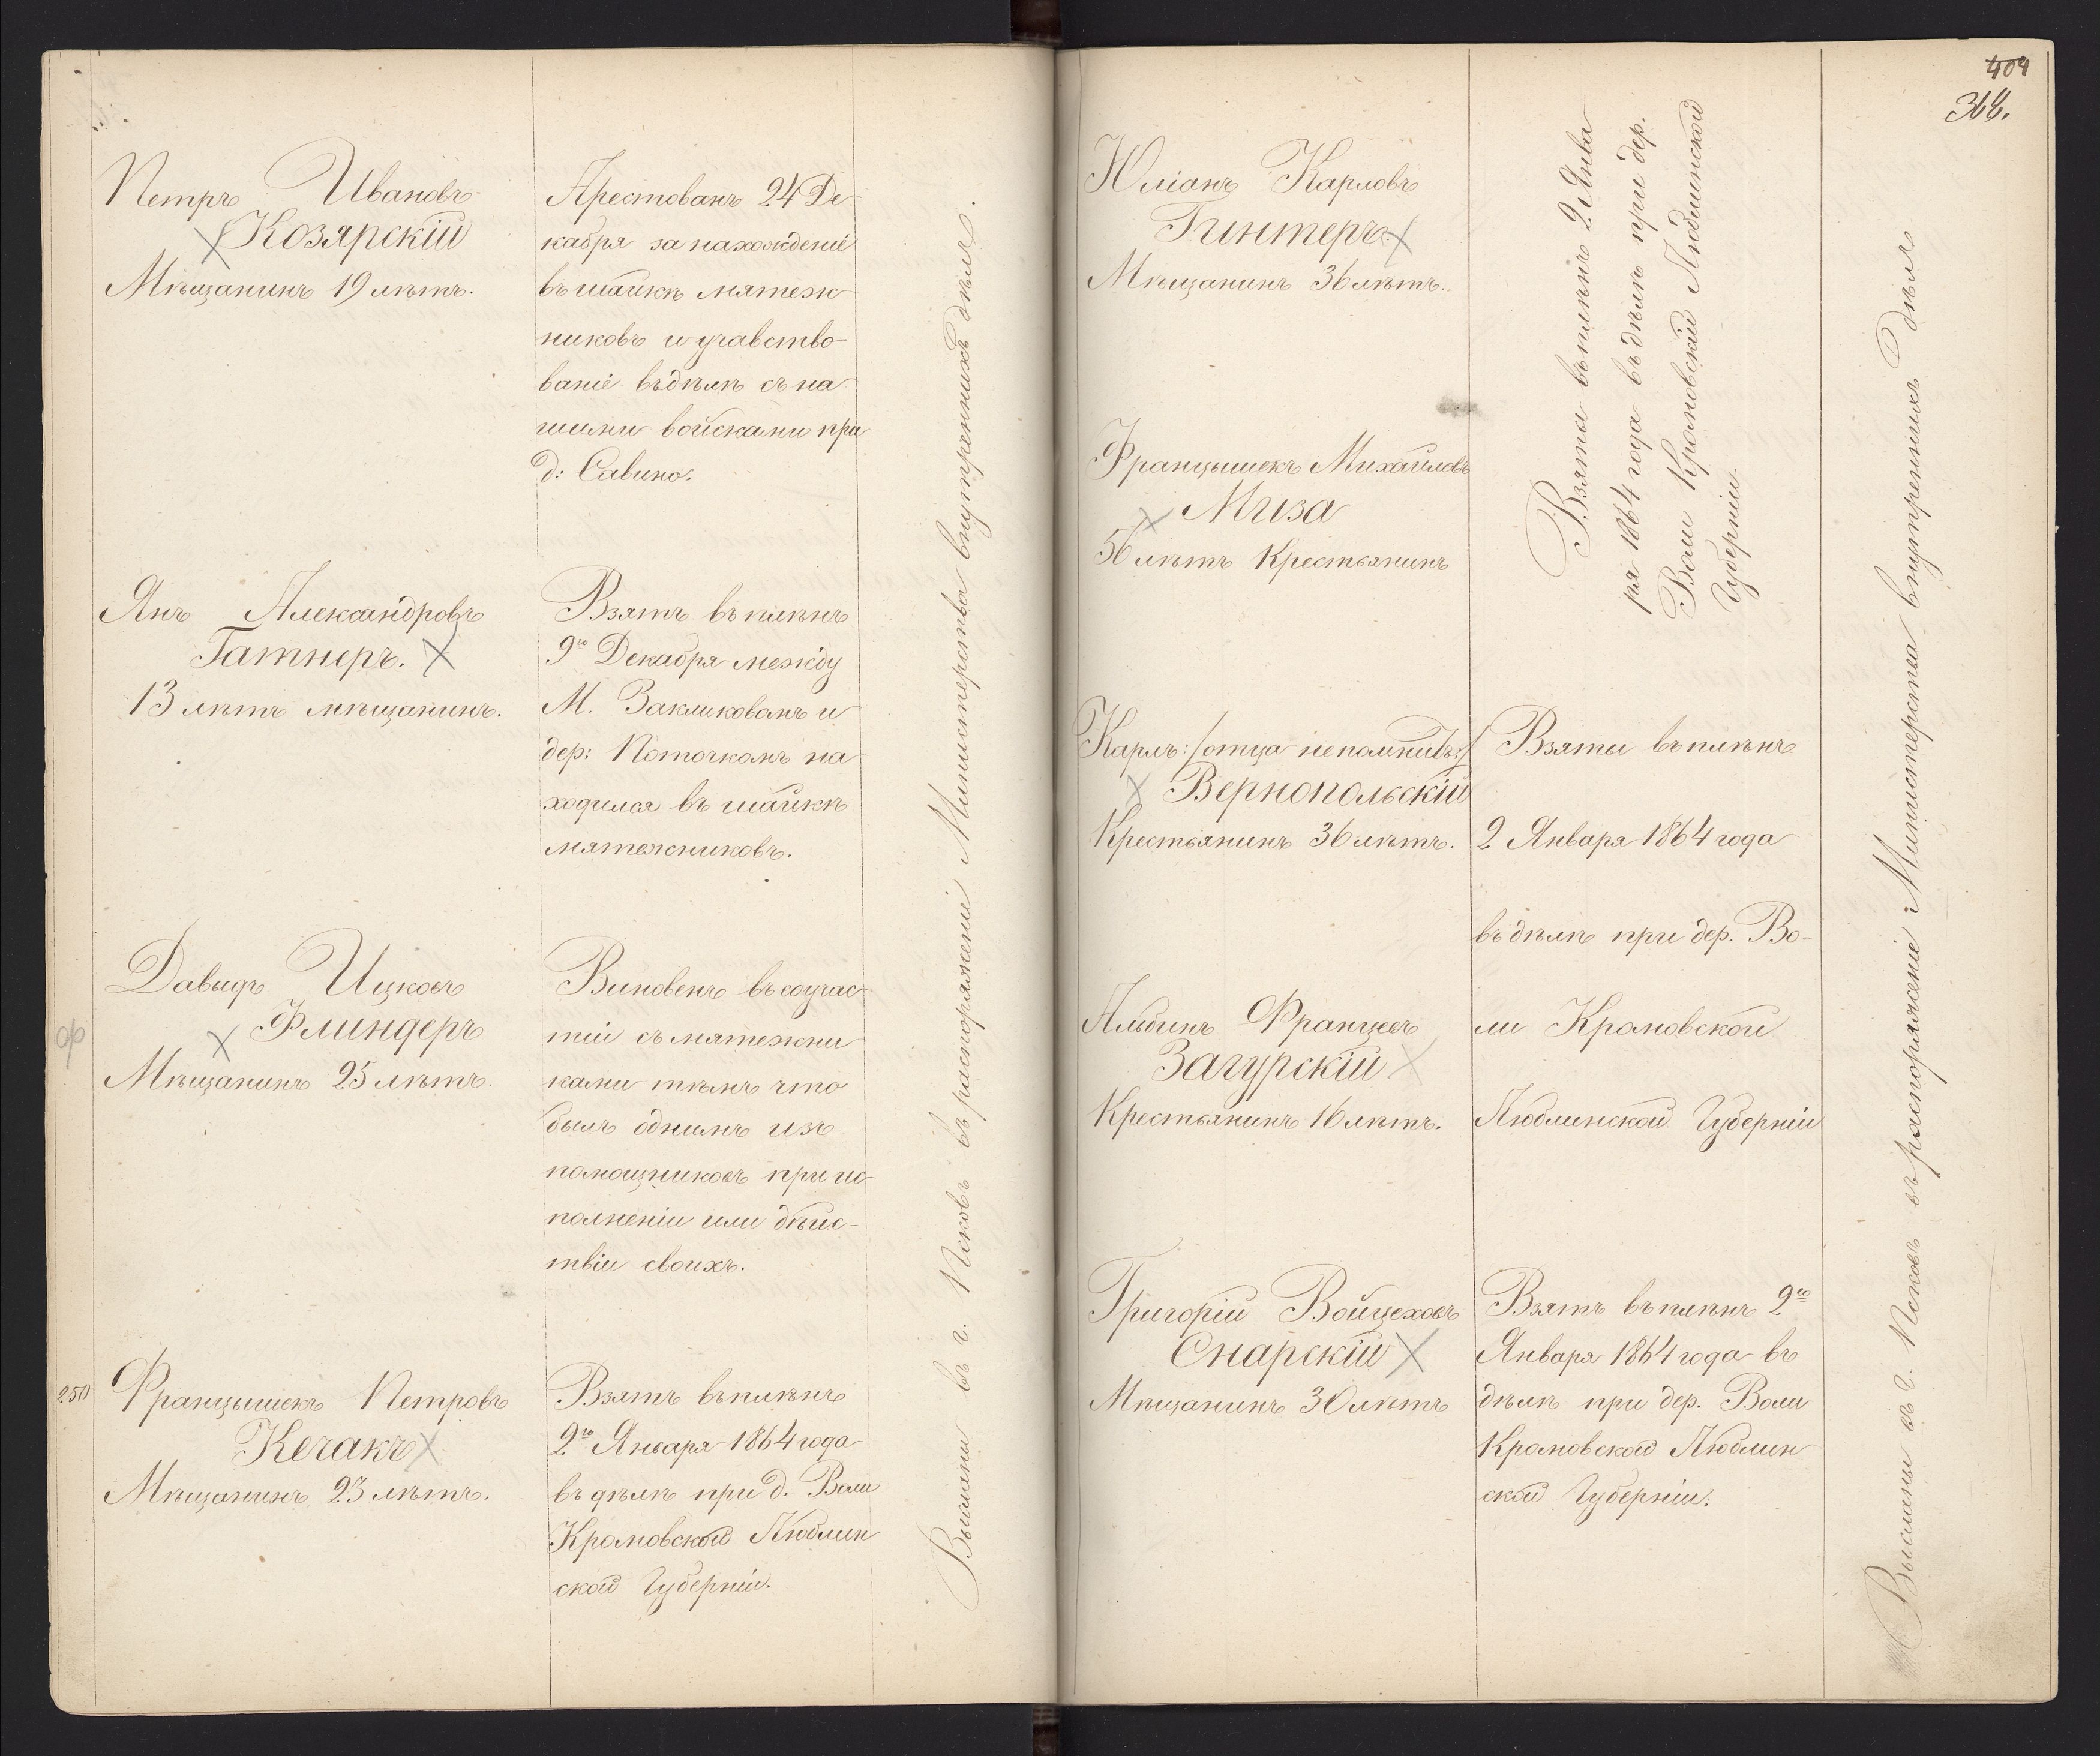 Петръ Ивановъ
Козярскій
Мѣщанинъ 19 лѣтъ.
Арестованъ 24 Де-
кабря за нахожденіе
въ шайкѣ мятеж
никовъ и учавство-
ваніе въ дѣлѣ съ на
шими войсками при
д: Савино.
Янъ Александровъ
Гатнеръ.
13 лѣтъ мѣщанинъ.
Взятъ въ плѣнъ
9го Декабря между
М. Закликовомъ и
дер: Поточкомъ на
ходился въ шайкѣ
мятежниковъ.
Давидъ Ицковъ
Флиндеръ
Мѣщанинъ 25 лѣтъ.
Виновенъ въ соучас
тіи съ мятежни
ками тѣмъ что
былъ однимъ изъ
помощниковъ при ис-
полненіи или дѣйс-
твіи своихъ.
250
Францышекъ Петровъ
Кечакъ
Мѣщанинъ 23 лѣтъ.
Взятъ въ плѣнъ
2го Января 1864 года
въ дѣлѣ при д. Воли
Кромовской Люблин
ской Губерніи.
Высланы въ г. Псковъ въ распоряженіе Министерства внутреннихъ дѣлъ.
404
368.
Юліанъ Карловъ
Гинтеръ
Мѣщанинъ 36 лѣтъ.
Францышекъ Михайловъ
Миза
56 лѣтъ Крестьянинъ
Взяты въ плѣнъ 2 Янва
ря 1864 года въ дѣлѣ при дер.
Воли Кромовскій Люблинской
Губерніи.
Карлъ: /отца непомнитъ:/
Вернопольскій
Крестьянинъ 36 лѣтъ.
Альбинъ Францевъ
Загурскій
Крестьянинъ 16 лѣтъ.
Взяты въ плѣнъ
2 Января 1864 года
въ дѣлѣ при дер. Во-
ли Кромовской
Люблинской Губерніи
Григорій Войцеховъ
Снарскій
Мѣщанинъ 30 лѣтъ
Взятъ въ плѣнъ 2го
Января 1864 года въ
дѣлѣ при дер. Воли
Кромовской Люблин
ской Губерніи.
Высланы въ г. Псковъ въ распоряженіе Министерства внутреннихъ дѣлъ